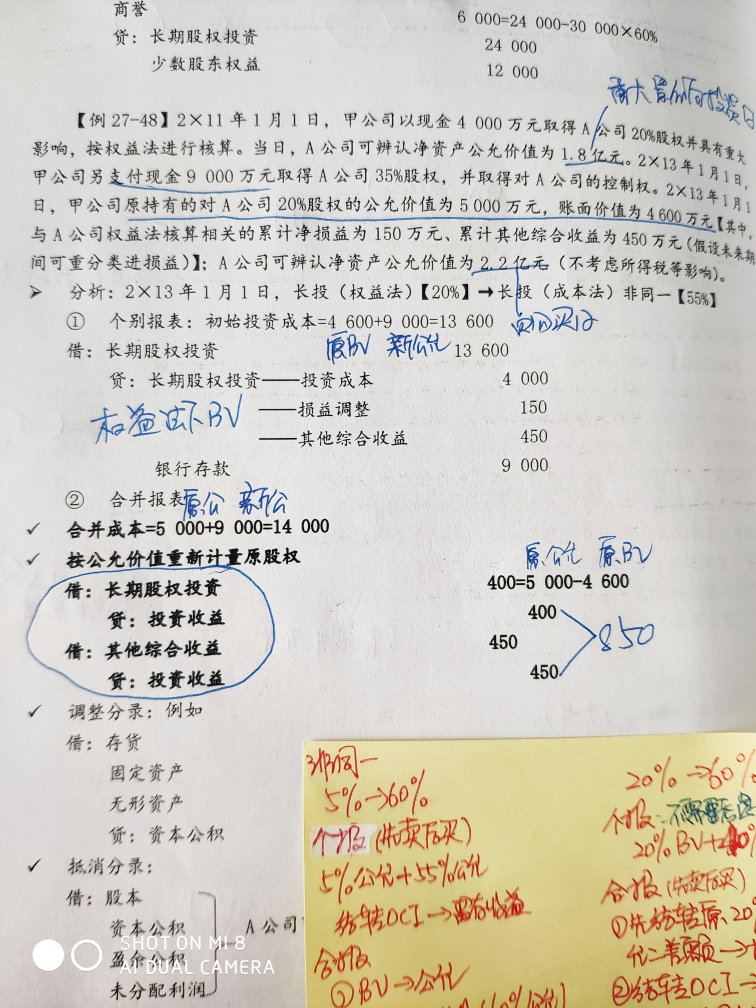 商誉 6 000=24 000-30 000×60%
贷：长期股权投资 24 000
少数股东权益 12 000
【例 27-48】2×11 年 1 月 1 日，甲公司以现金 4 000 万元取得 A 公司 20%股权并具有重大
影响，按权益法进行核算。当日，A 公司可辨认净资产公允价值为 1.8 亿元。2×13 年 1 月 1 日，
甲公司另支付现金 9 000 万元取得 A 公司 35%股权，并取得对 A 公司的控制权。2×13 年 1 月 1
日，甲公司原持有的对 A 公司 20%股权的公允价值为 5 000 万元，账面价值为 4 600 万元【其中，
与 A 公司权益法核算相关的累计净损益为 150 万元、累计其他综合收益为 450 万元（假设未来期
间可重分类进损益）】；A 公司可辨认净资产公允价值为 2.2 亿元（不考虑所得税等影响）。
➢ 分析：2×13 年 1 月 1 日，长投（权益法）【20%】→长投（成本法）非同一【55%】
① 个别报表：初始投资成本=4 600+9 000=13 600 购买日
原BV 新公允
借：长期股权投资 13 600
贷：长期股权投资——投资成本 4 000
——损益调整 150
权益法下BV
——其他综合收益 450
银行存款 9 000
② 合并报表
原公 新公
✓ 合并成本=5 000+9 000=14 000
✓ 按公允价值重新计量原股权
原公允 原BV
借：长期股权投资 400=5 000-4 600
贷：投资收益 400
借：其他综合收益 450
850
贷：投资收益 450
✓ 调整分录：例如
借：存货
固定资产
无形资产
贷：资本公积
✓ 抵消分录：
借：股本
资本公积 A 公司
盈余公积
未分配利润
非同一
5%→60%
个报（先卖后买）
5%公允+55%公允
结转OCI→留存收益
合报
①BV→公允
20%→60%
个报：
20%BV+
合报（先卖后买）
①先结转原20%
②结转OCI→
SHOT ON MI 8
AI DUAL CAMERA